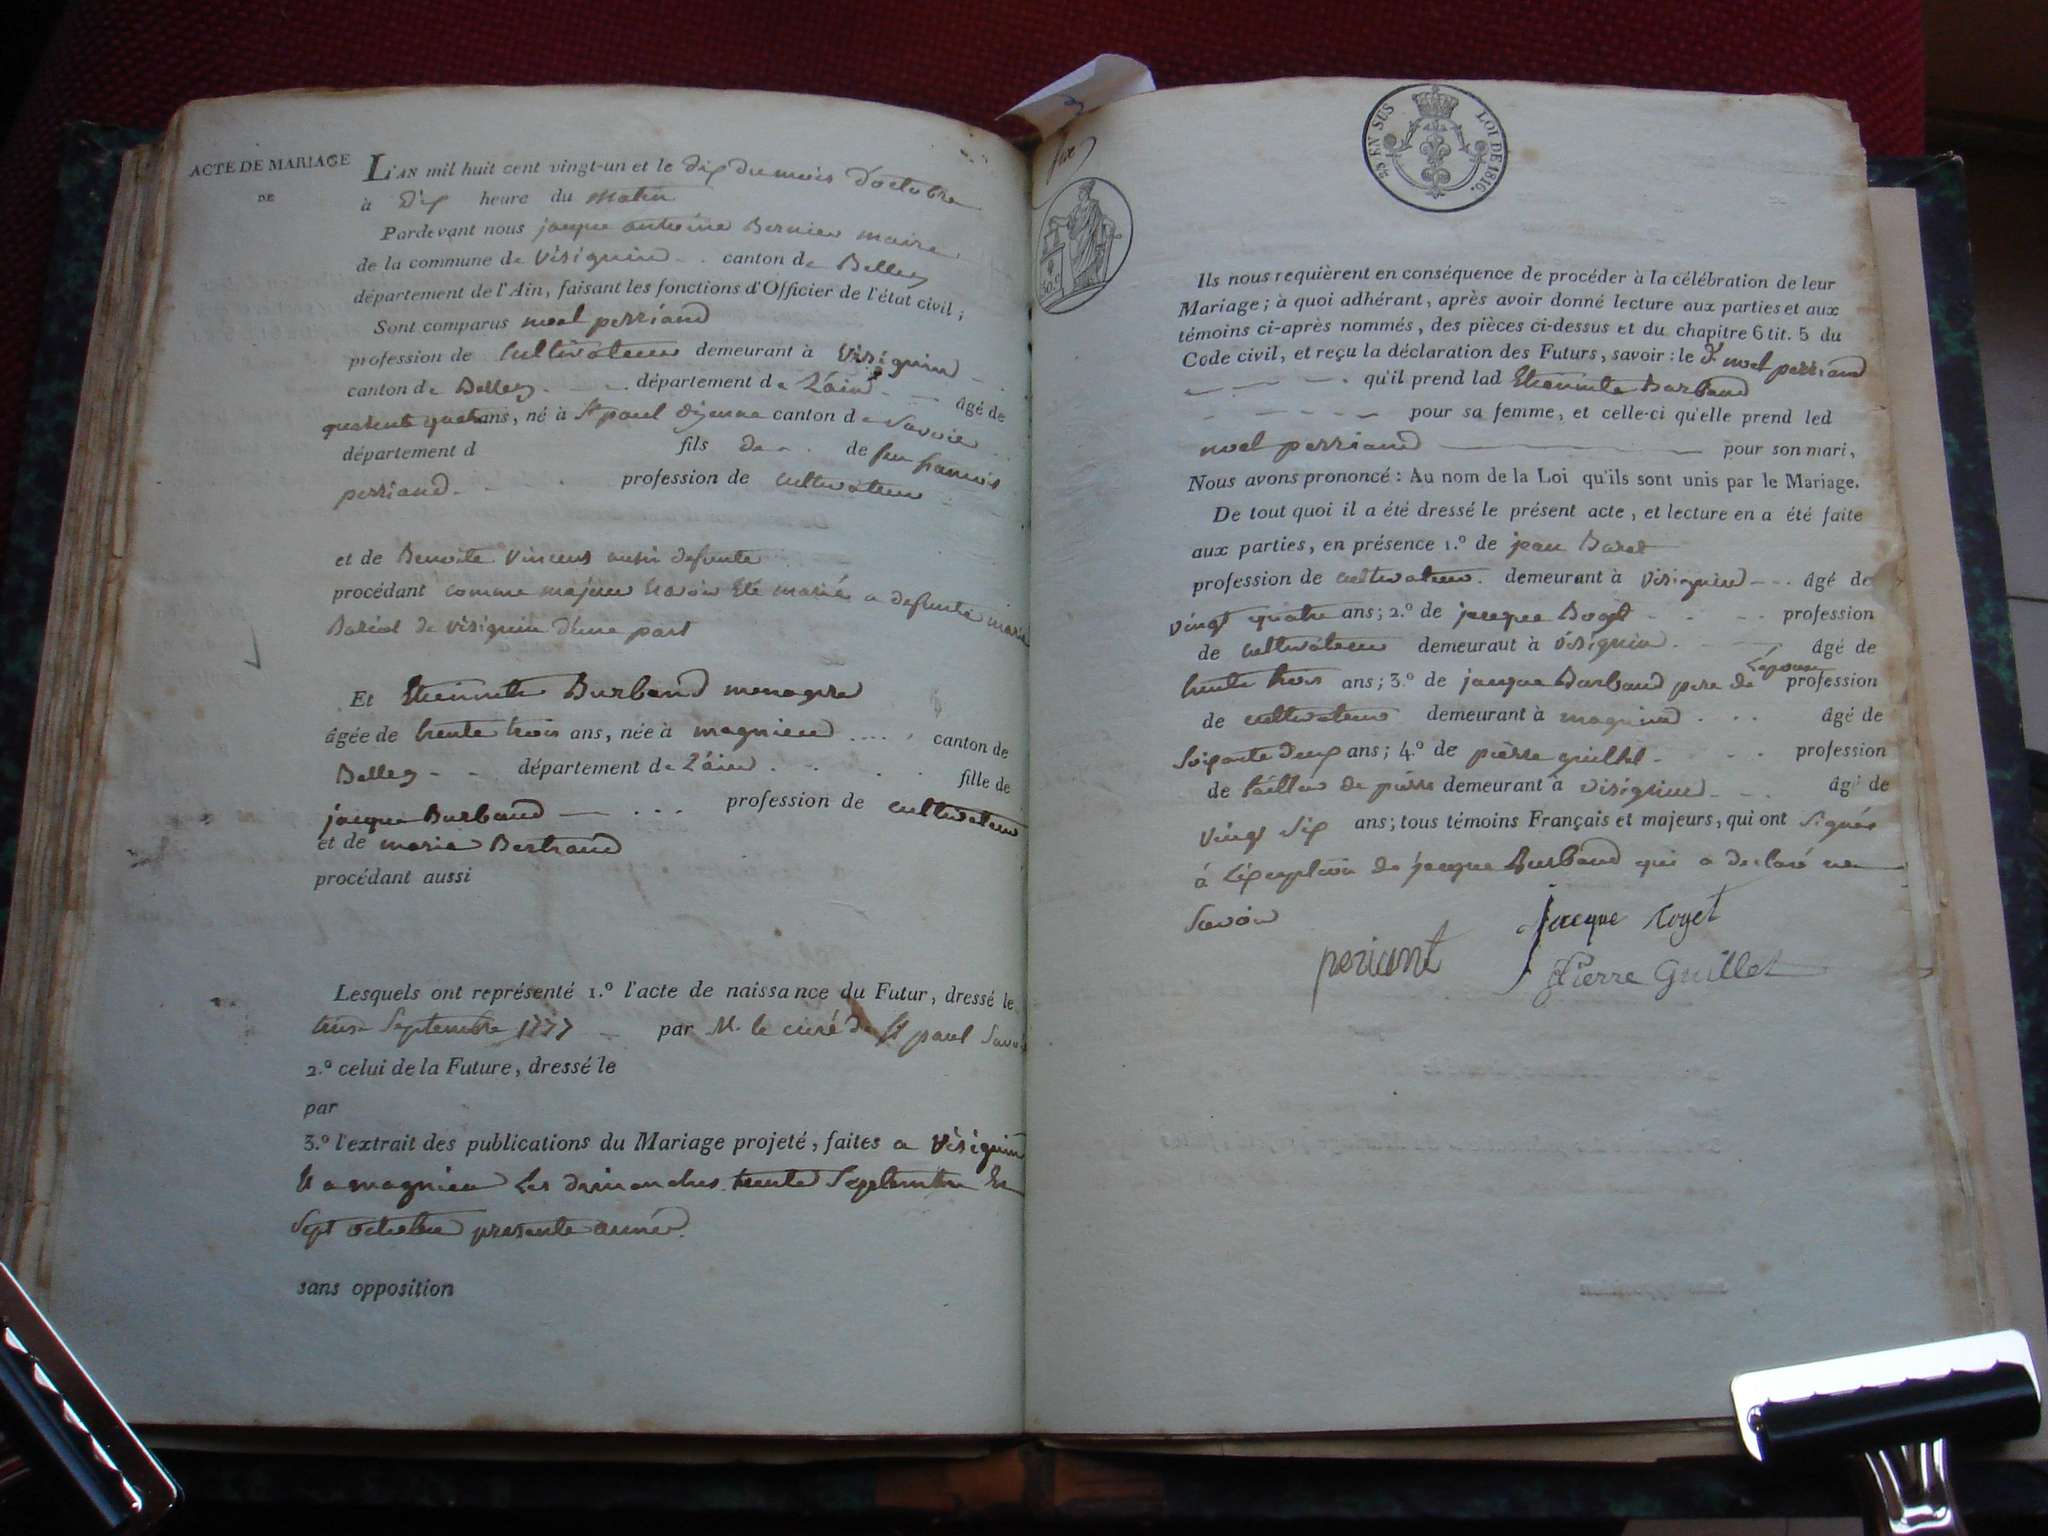 ACTE DE MARIAGE
DE
L'AN mil huit cent vingt-un et le dix du mois d'octobre
à dix heure du matin
Pardevant nous jacque antoine Bernier maire
de la commune de visignin canton de Belley
département de l'Ain, faisant les fonctions d'Officier de l'état civil ;
Sont comparus noel perriand
profession de Cultivateur demeurant à visignin
canton de Belley département de L'ain âgé de
quarente quatre ans, né à St paul canton de Savoie
département d fils de de feu francois
perriand profession de cultivateur
et de Benoite vincent aussi defunte
procédant comme majeur Été marié a defunte marie
de visignin d'une part
Et Etiennette Burband menagere
âgée de trente trois ans, née à magnieu canton de
Belley département de L'ain fille de
jacque Burband profession de cultivateur
et de marie Bertrand
procédant aussi
Lesquels ont représenté 1.º l'acte de naissance du Futur, dressé le
Septembre 1777 par M. le curé de St paul Savoie
2.º celui de la Future, dressé le
par
3.º l'extrait des publications du Mariage projeté, faites a visignin
Et a magnieu Les dimanches trente Septembre Et
Sept octobre presente année.
sans opposition
3
50.C
25 EN SUS LOI DE 1816.
Ils nous requièrent en conséquence de procéder à la célébration de leur
Mariage ; à quoi adhérant, après avoir donné lecture aux parties et aux
témoins ci-après nommés, des pièces ci-dessus et du chapitre 6 tit. 5 du
Code civil, et reçu la déclaration des Futurs, savoir : le d. noel perriand
qu'il prend lad Etiennette Burband
pour sa femme, et celle-ci qu'elle prend led
noel perriand pour son mari,
Nous avons prononcé : Au nom de la Loi qu'ils sont unis par le Mariage.
De tout quoi il a été dressé le présent acte, et lecture en a été faite
aux parties, en présence 1.º de jean
profession de cultivateur demeurant à visignin âgé de
vingt quatre ans ; 2.º de jacque profession
de cultivateur demeurant à visignin âgé de
trente trois ans ; 3.º de jacque Burband pere de L'épouse profession
de cultivateur demeurant à magnieu âgé de
Soixante deux ans ; 4.º de pierre guillet profession
de tailleur de pierre demeurant à visignin âgé de
vingt Six ans ; tous témoins Français et majeurs, qui ont Signés
à L'exception de jacque Burband qui a declaré ne
Savoir
periant
Jacque roget
Pierre Guillet